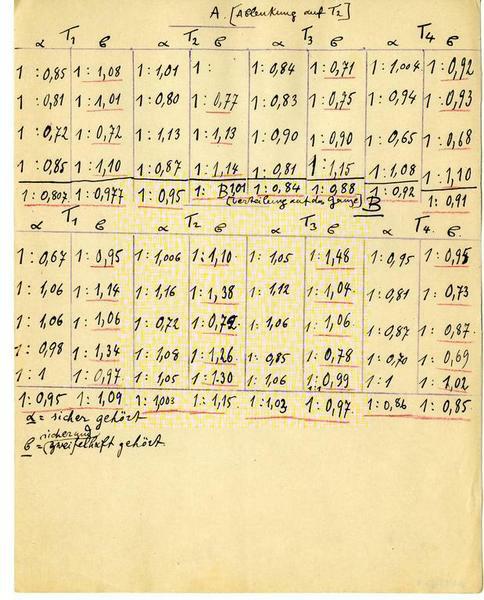 A. [Ablenkung auf T2]
T1 T2 T3 T4
α б α б α б α б
1 : 0,85 1 : 1,08 1 : 1,01 1 : 1 : 0,84 1 : 0,71 1 : 1,004 1 : 0,92
1 : 0,81 1 : 1,01 1 : 0,80 1 : 0,77 1 : 0,83 1 : 0,75 1 : 0,94 1 : 0,93
1 : 0,72 1 : 0,72 1 : 1,13 1 : 1,13 1 : 0,90 1 : 0,90 1 : 0,65 1 : 0,68
1 : 0,85 1 : 1,10 1 : 0,87 1 : 1,14 1 : 0,81 1 : 1,15 1 : 1,08 1 : 1,10
1 : 0,807 1 : 0,977 1 : 0,95 1 : 1 : 0,84 1 : 0,88 1 : 0,92 1 : 0,91
(Verteilung auf das Ganze) B
T1 T2 T3 T4
α б α б α б α б
1 : 0,67 1 : 0,95 1 : 1,006 1 : 1,10 1 : 1,05 1 : 1,48 1 : 0,95 1 : 0,95
1 : 1,06 1 : 1,14 1 : 1,16 1 : 1,38 1 : 1,12 1 : 1,04 1 : 0,81 1 : 0,73
1 : 1,06 1 : 1,06 1 : 0,72 1 : 0,72 1 : 1,06 1 : 1,06 1 : 0,87 1 : 0,87
1 : 0,98 1 : 1,34 1 : 1,08 1 : 1,26 1 : 0,85 1 : 0,78 1 : 0,70 1 : 0,69
1 : 1 1 : 0,97 1 : 1,05 1 : 1.30 1 : 1,06 1 : 0,99 1 : 1 1 : 1,02
1 : 0,95 1 : 1,09 1 : 1,003 1 : 1,15 1 : 1,03 1 : 0,97 1 : 0,86 1 : 0,85
α = sicher gehört
sicher und
б = zweifelhaft gehört